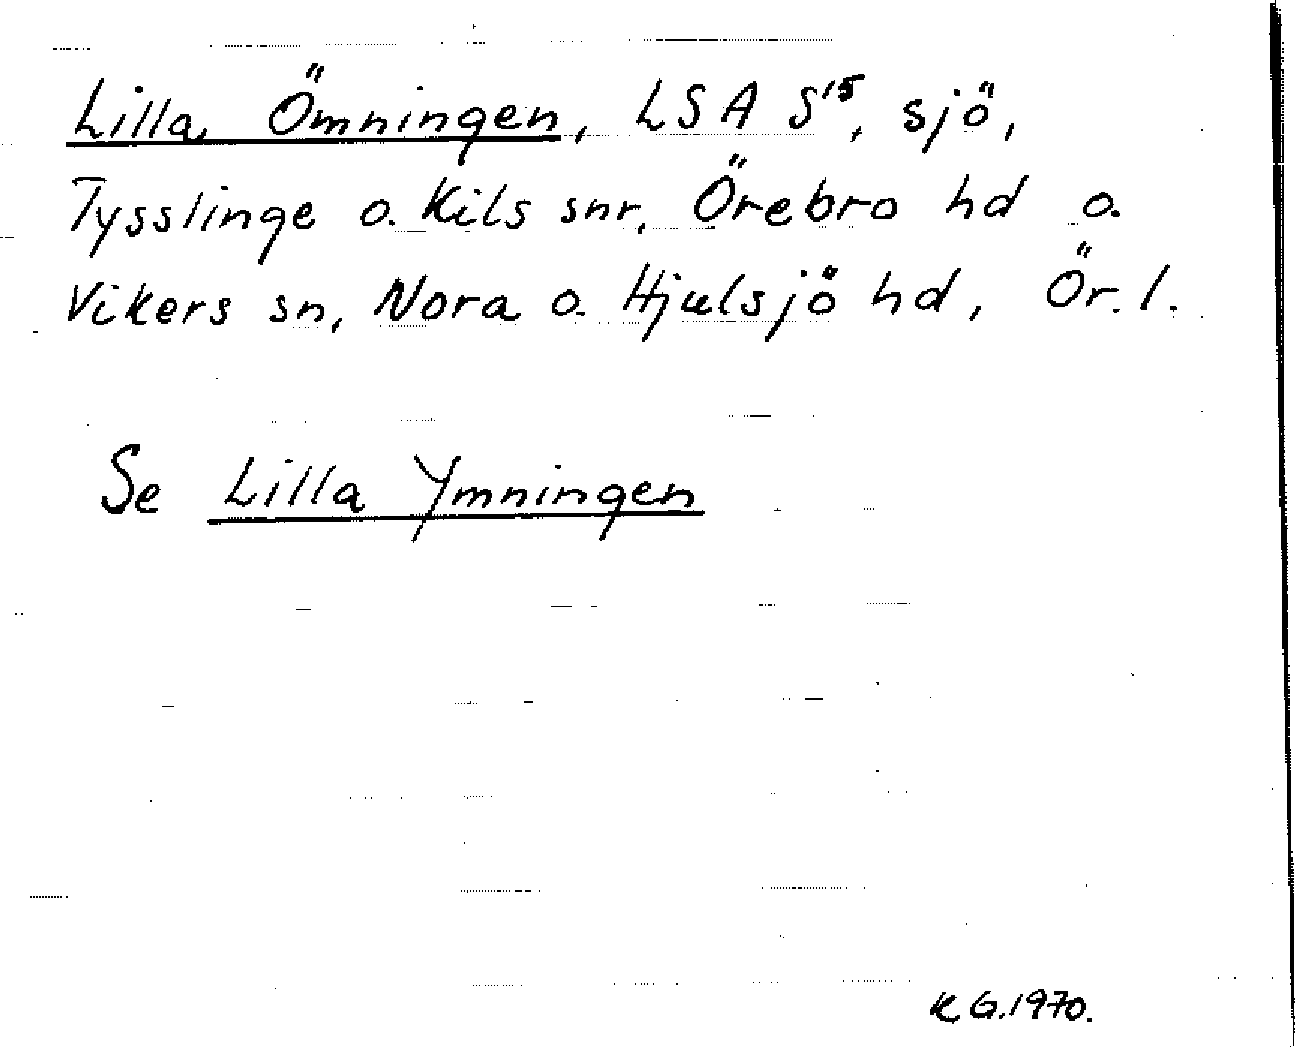 Lilla Ömningen, LSA S¹⁵, sjö,
Tysslinge o. Kils snr, Örebro hd o.
Vikers sn, Nora o. Hjulsjö hd, Ör. l.
Se Lilla Ymningen
K G. 1970.